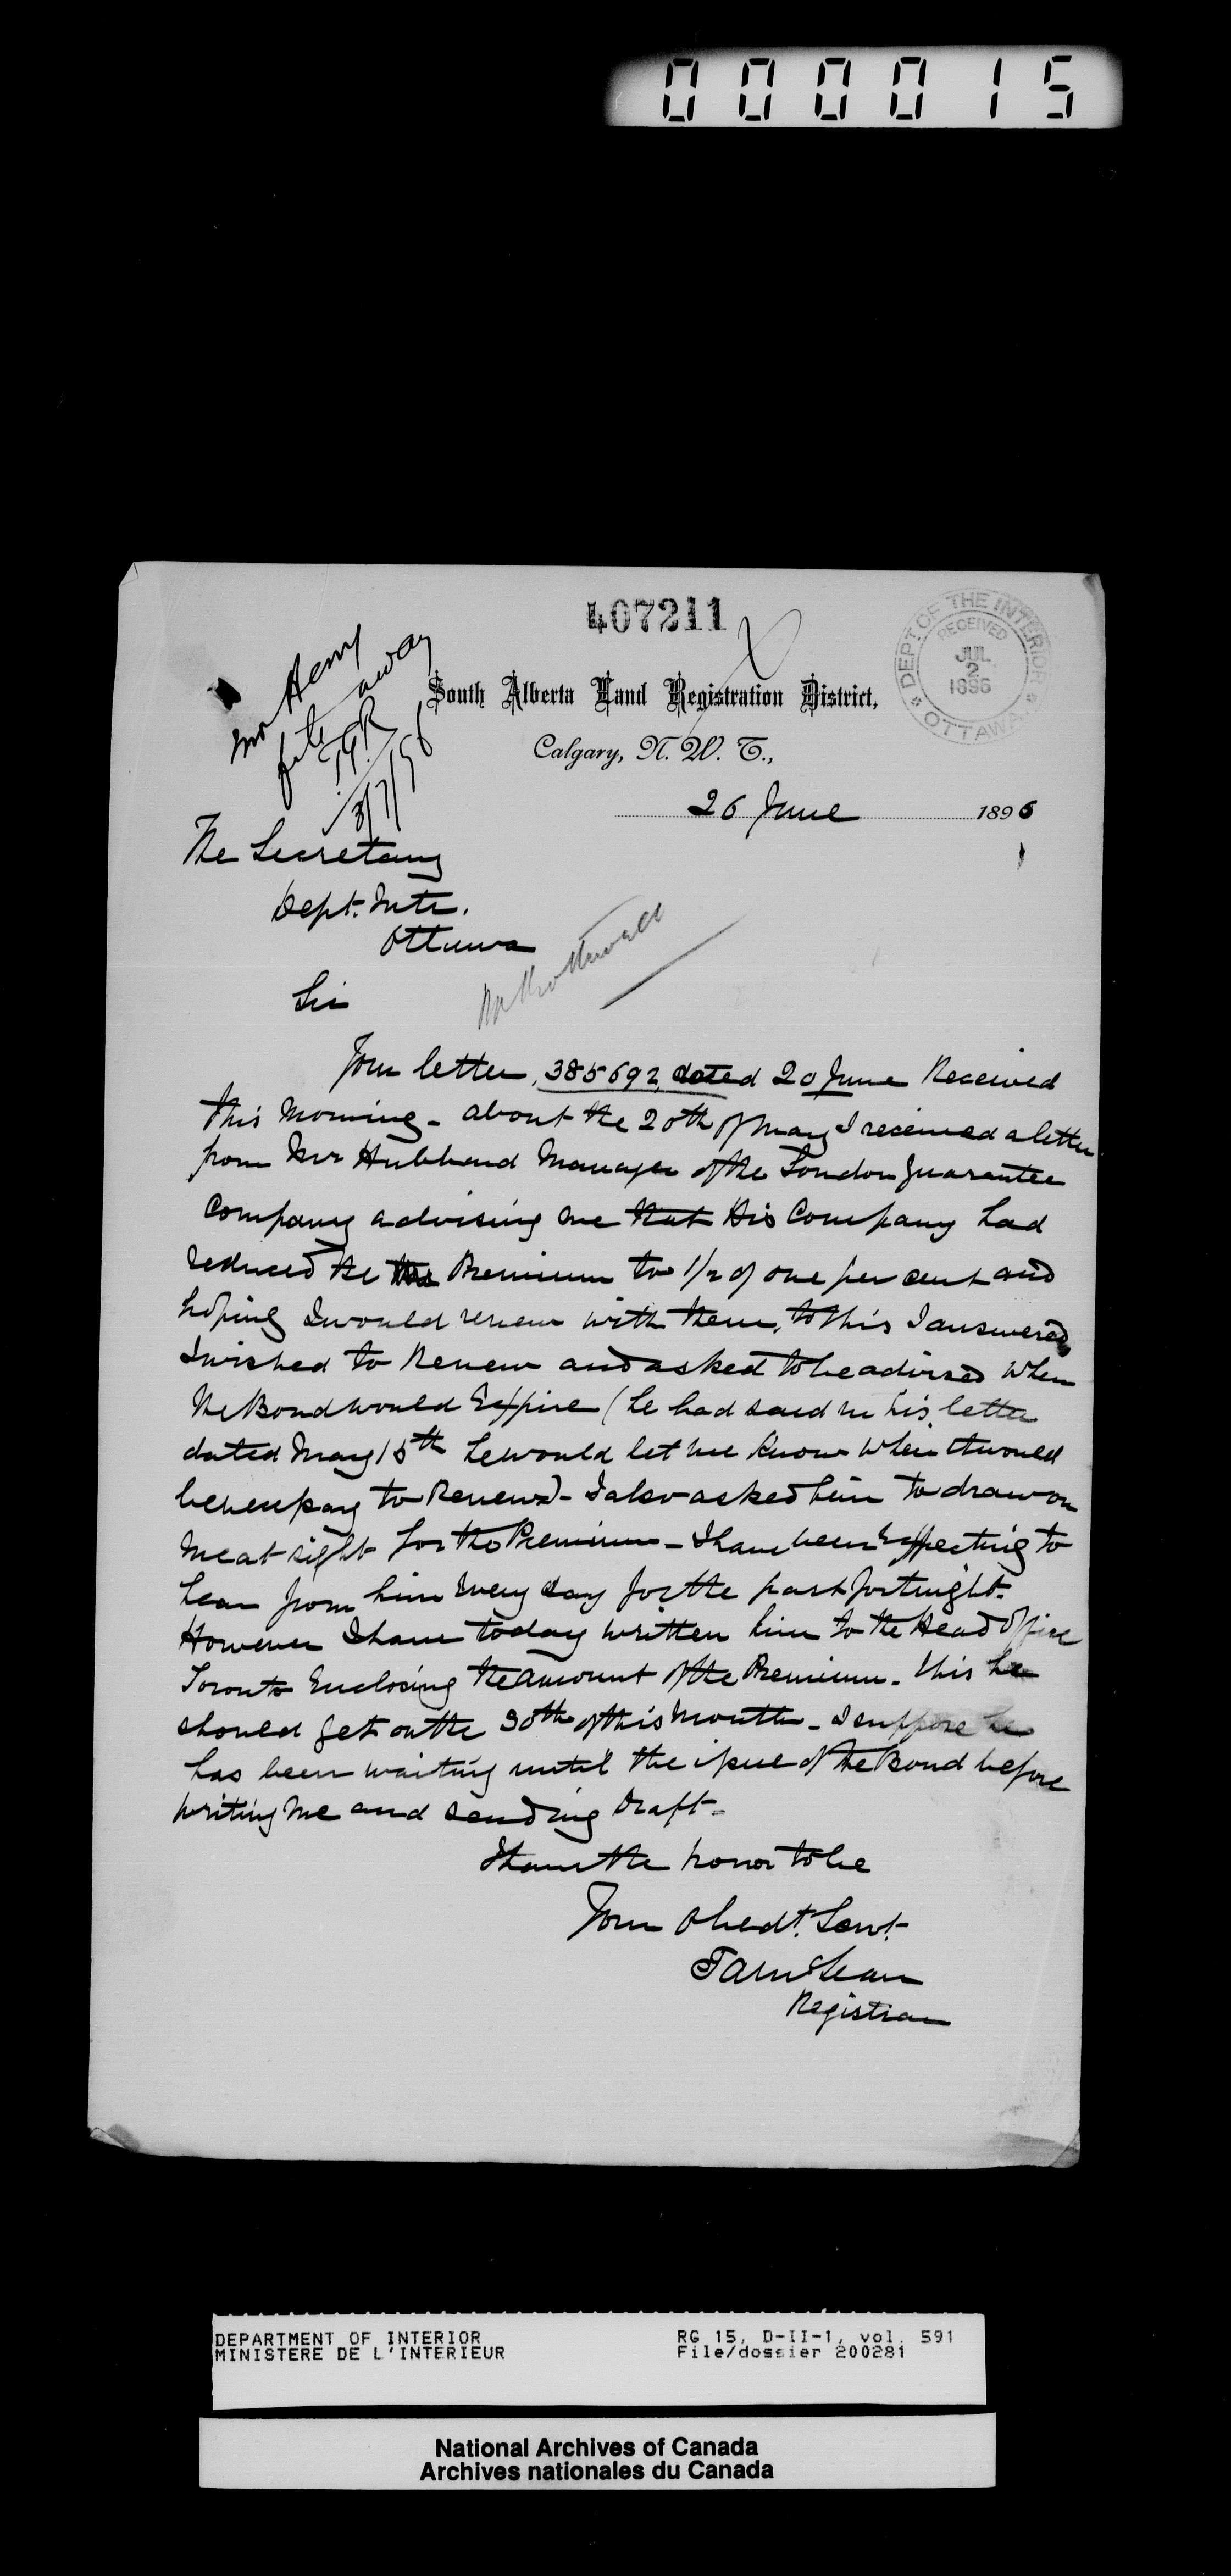 000015
407211
DEPT. OF THE INTERIOR
RECEIVED
JUL
2
1896
OTTAWA
Mr Henry
file away
3/7/96
South Alberta Land Registration District,
Calgary, N. W. T.,
26 June 1896
The Secretary
Dept. Intr.
Ottawa
Sir
Your letter, 385692, dated 20 June Received
this Morning - about the 20th of May I received a letter
from Mr Hubbard Manager of the London Guarantee
Company advising me that His Company had
reduced the the Premium to 1/2 of one per cent and
hoping I would renew with them, to this I answered
I wished to Renew and asked to be advised when
the Bond would Expire (he had said in his letter
dated May 15th he would let me know when it would
be necessary to Renew) - I also asked him to draw on
me at sight for the Premium - I have been Expecting to
hear from him every day for the past fortnight.
However I have today written him to the Head Office
Toronto Enclosing the amount of the Premium. this he
should get on the 30th of this Month - I suppose he
has been waiting until the issue of the Bond before
writing me and sending Draft -
I have the honor to be
Your Obedt. Servt.
Registrar
DEPARTMENT OF INTERIOR
MINISTERE DE L'INTERIEUR
RG 15, D-II-1, vol. 591
File/dossier 200281
National Archives of Canada
Archives nationales du Canada